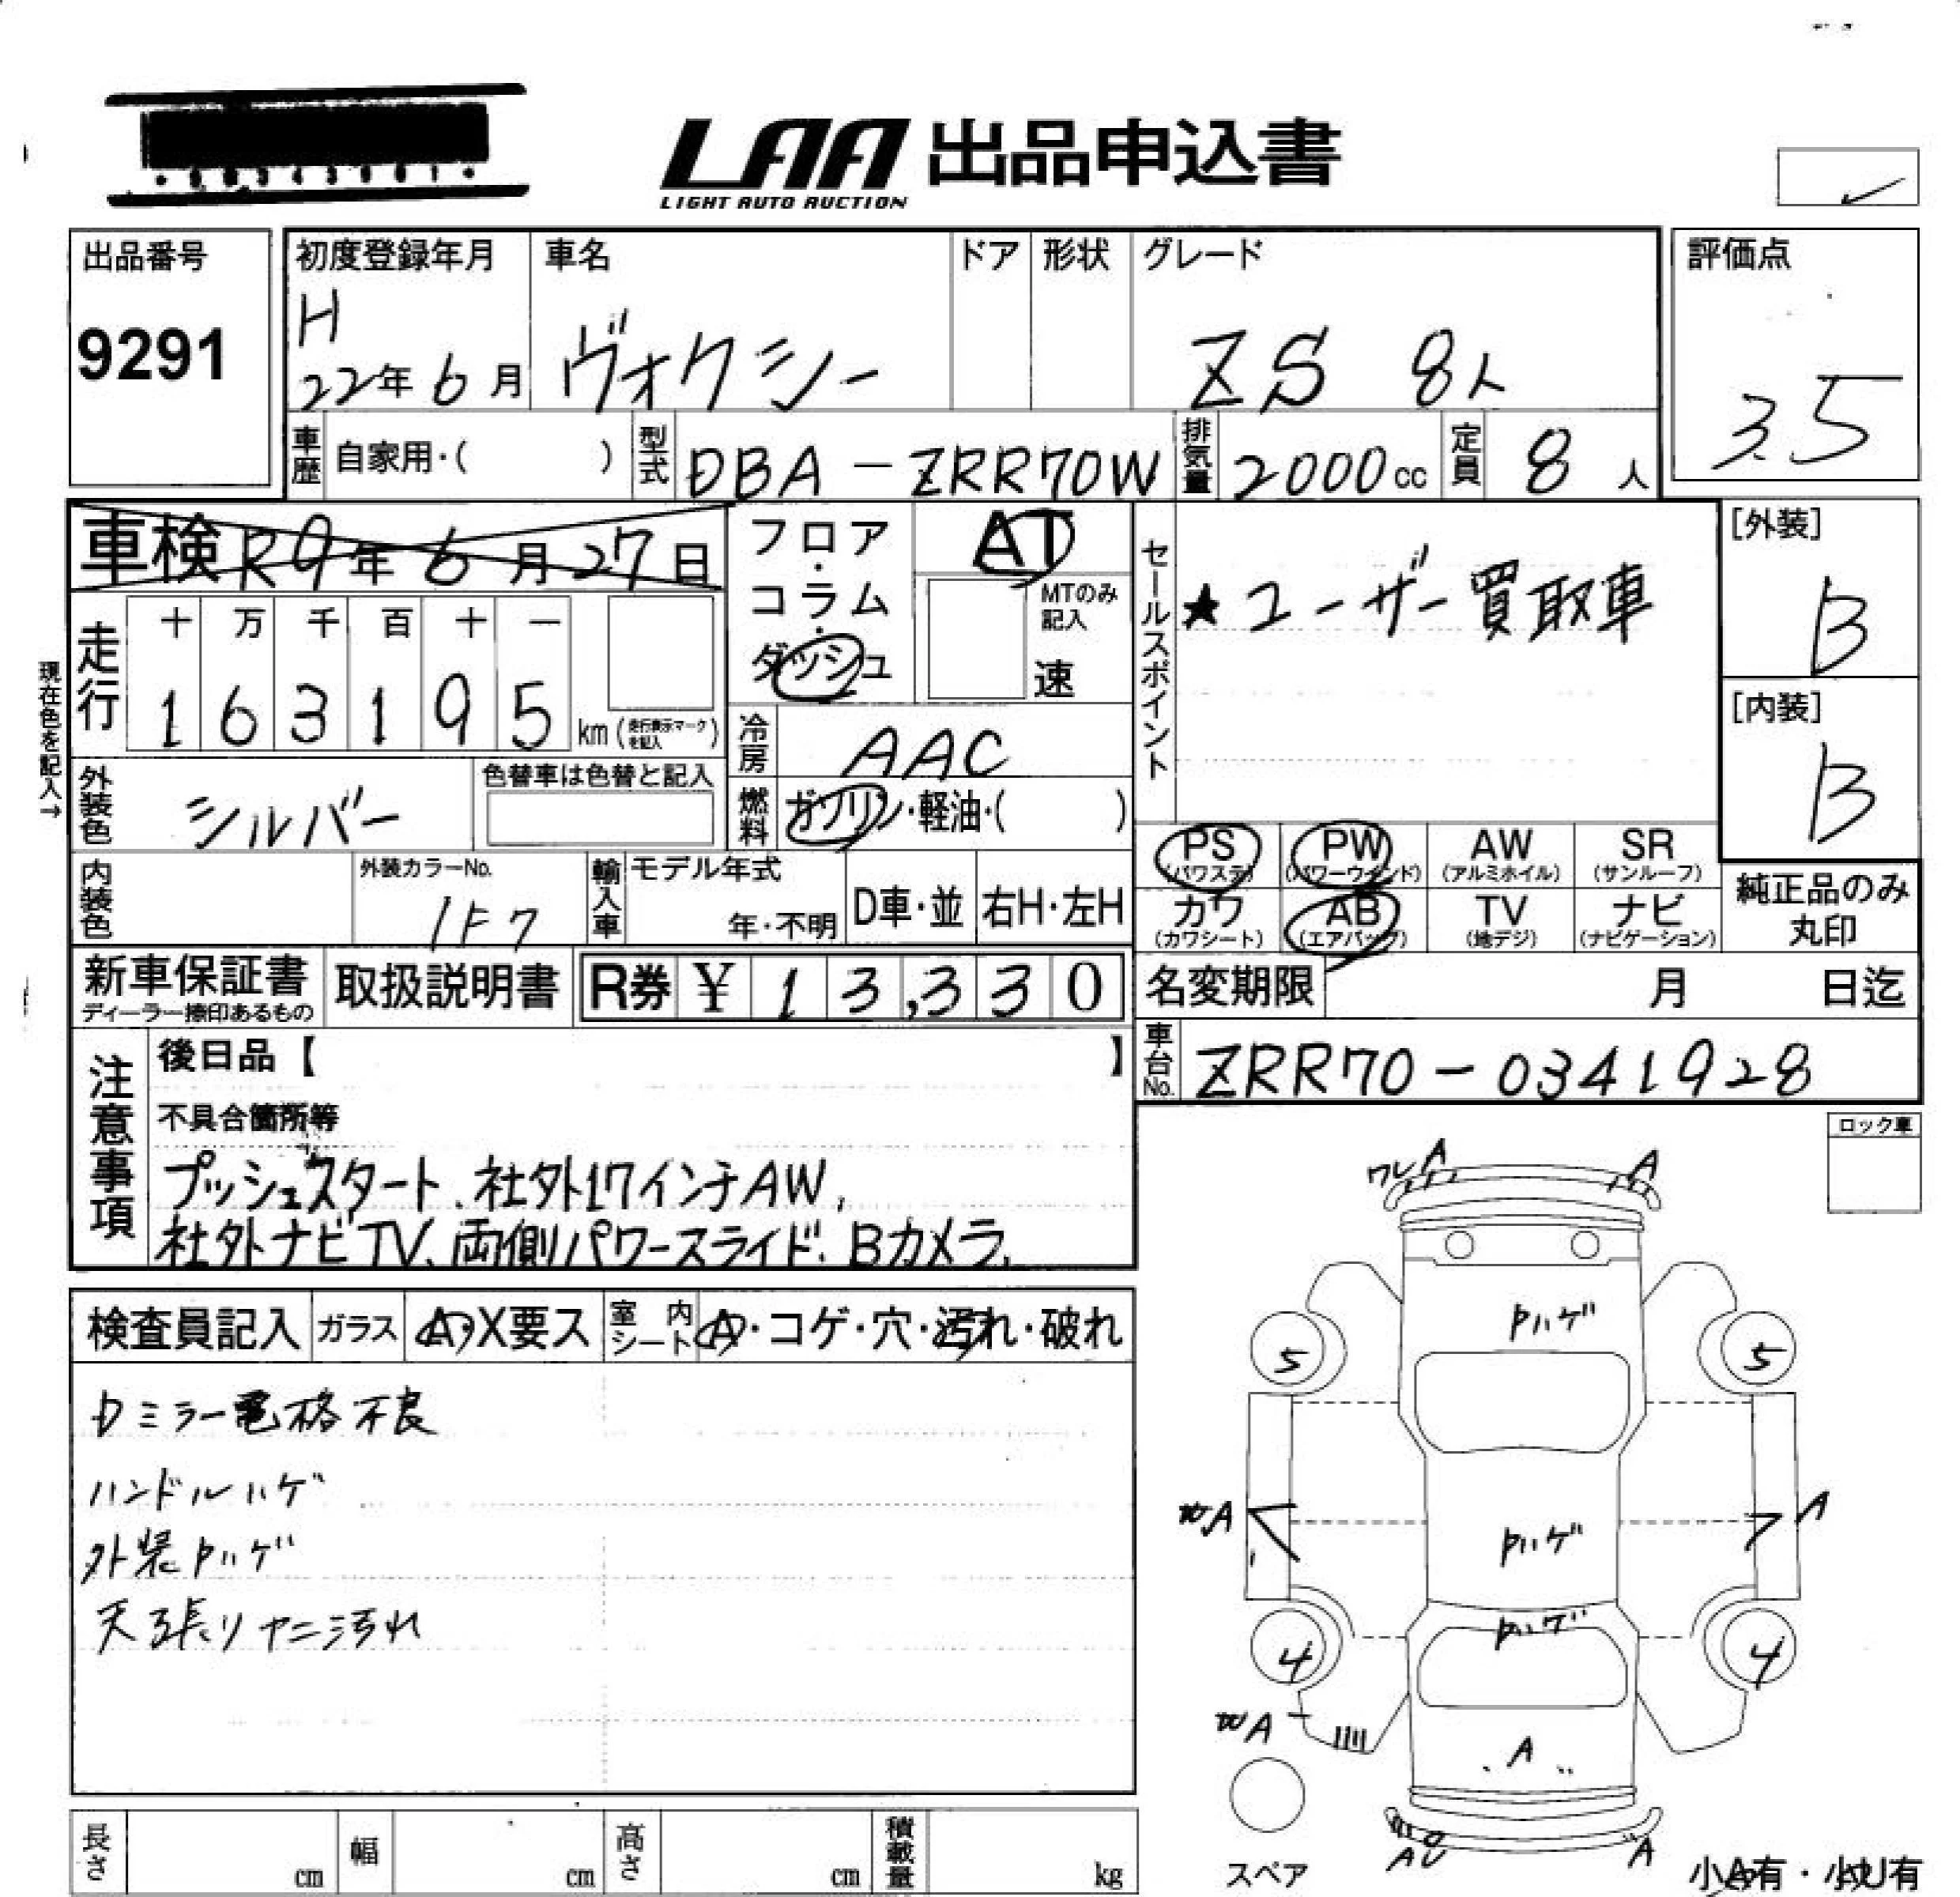 LAA 出品申込書
LIGHT AUTO AUCTION
出品番号
9291
初度登録年月
H
22年 6月
車名
ヴォクシー
ドア
形状
グレード
ZS 8人
評価点
3.5
車歴
自家用・( )
型式
DBA-ZRR70W
排気量
2000cc
定員
8人
車検 R9年6月27日
フロア・コラム・ダッシュ
AT
MTのみ記入
速
セールスポイント
★ユーザー買取車
[外装]
B
[内装]
B
現在色を記入→
走行
十 万 千 百 十 一
1 6 3 1 9 5 km (走行表示マークを記入)
冷房
AAC
燃料
ガソリン・軽油・( )
外装色
シルバー
色替車は色替と記入
内装色
外装カラーNo.
1F7
輸入車
モデル年式
年・不明
D車・並
右H・左H
PS (パワステ)
PW (パワーウインド)
AW (アルミホイル)
SR (サンルーフ)
カワ (カワシート)
AB (エアバッグ)
TV (地デジ)
ナビ (ナビゲーション)
純正品のみ丸印
新車保証書
ディーラー捺印あるもの
取扱説明書
R券 ¥ 13,330
名変期限 月 日迄
車台No.
ZRR70-0341928
注意事項
後日品【 】
不具合箇所等
プッシュスタート、社外17インチAW、
社外ナビTV、両側パワースライド、Bカメラ、
ロック車
検査員記入
ガラス
A・X要ス
室内シート
A・コゲ・穴・汚れ・破れ
Dミラー電格不良
ハンドルハゲ
外装Pハゲ
天張リヤニ汚れ
ワレ A
A
Pハゲ
5
5
A
A
Pハゲ
Pハゲ
4
4
A
A
AU
A
スペア
小A有・小U有
長さ cm
幅 cm
高さ cm
積載量 kg